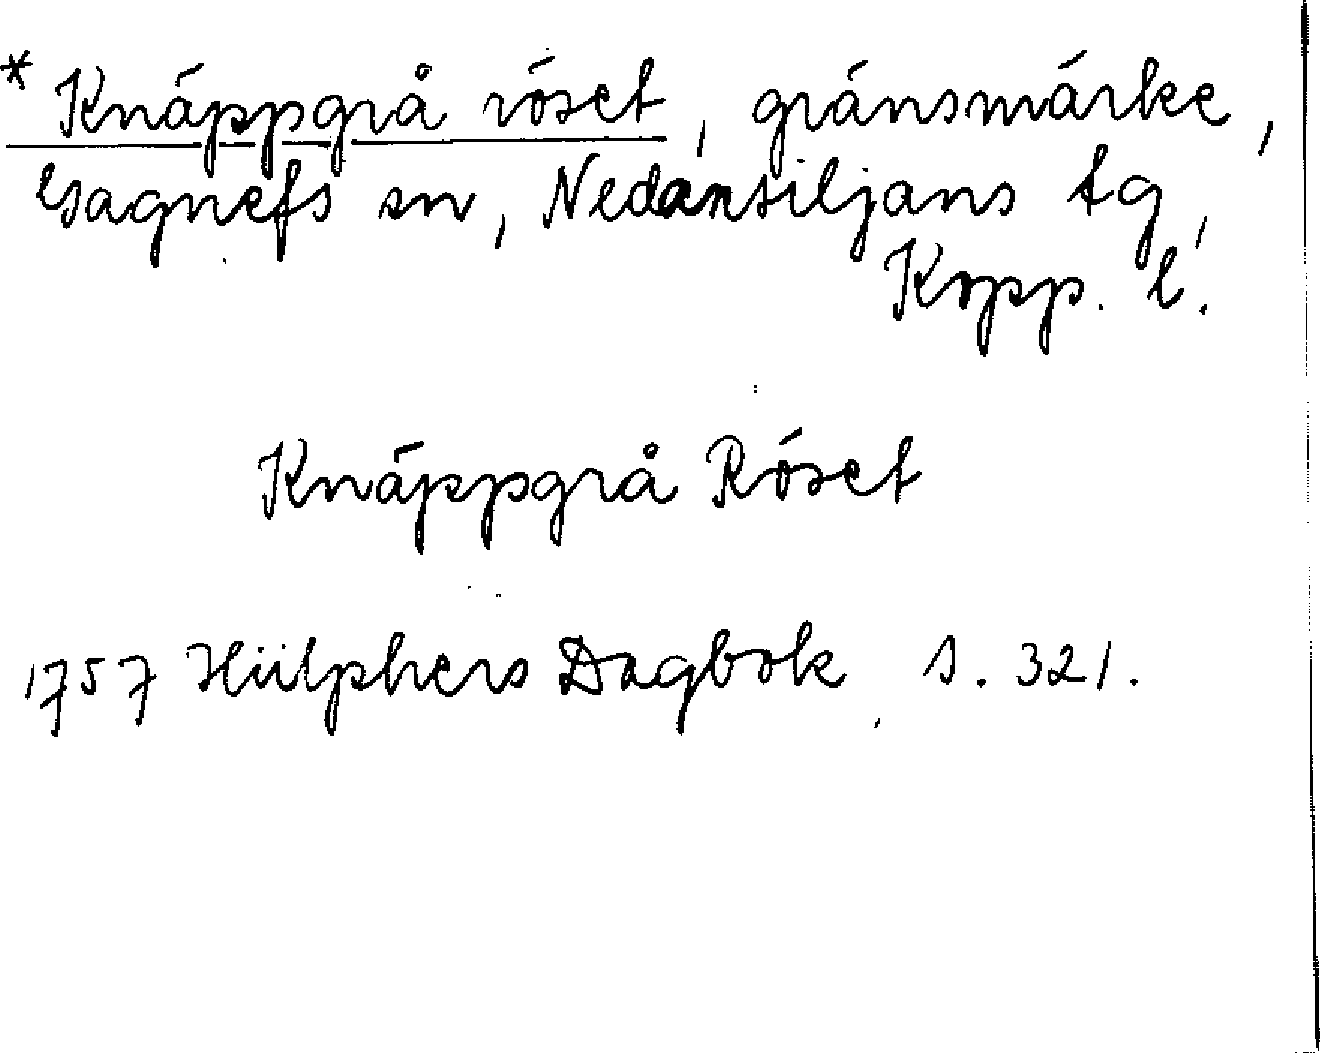 * Knäppgrå röset, gränsmärke,
Gagnefs sn, Nedansiljans tg,
Kopp. l.
Knäppgrå Röset
1757 Hülphers Dagbok s. 321.